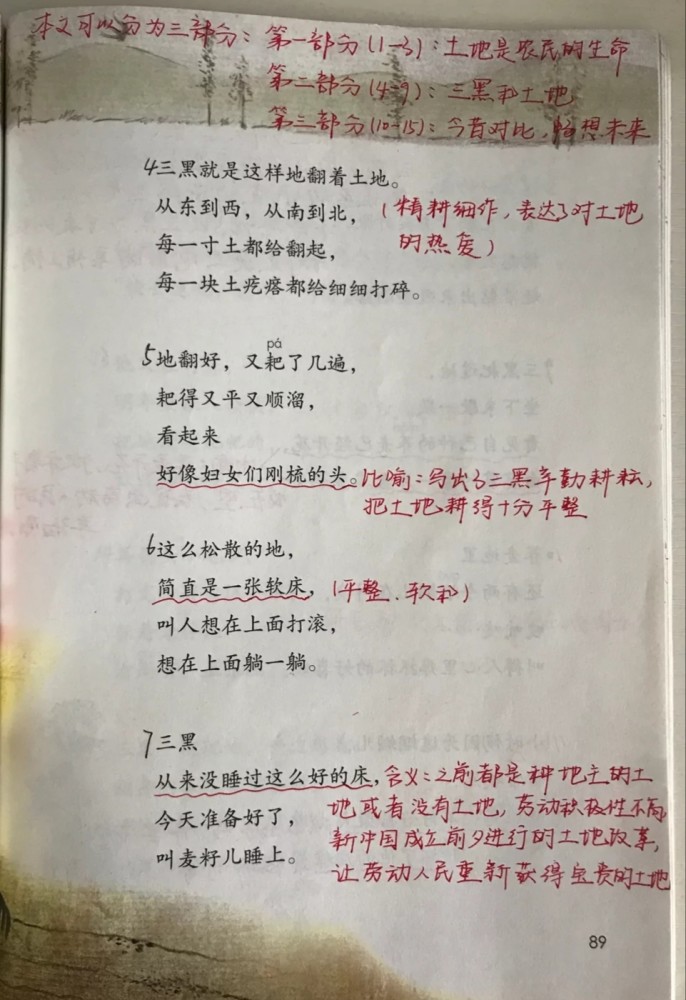 本文可以分为三部分：第一部分(1-3)：土地是农民的生命
第二部分(4-9)：三黑和土地
第三部分(10-15)：今昔对比，畅想未来
4三黑就是这样地翻着土地。
从东到西，从南到北，(精耕细作，表达了对土地
的热爱)
每一寸土都给翻起，
每一块土疙瘩都给细细打碎。
pá
5地翻好，又耙了几遍，
耙得又平又顺溜，
看起来
好像妇女们刚梳的头。比喻：写出了三黑辛勤耕耘，
把土地耕得十分平整
6这么松散的地，
简直是一张软床，(平整、软和)
叫人想在上面打滚，
想在上面躺一躺。
7三黑
从来没睡过这么好的床，含义：之前都是种地主的土
地或者没有土地，劳动积极性不高，
今天准备好了，
新中国成立前夕进行的土地改革，
叫麦籽儿睡上。
让劳动人民重新获得宝贵的土地
89